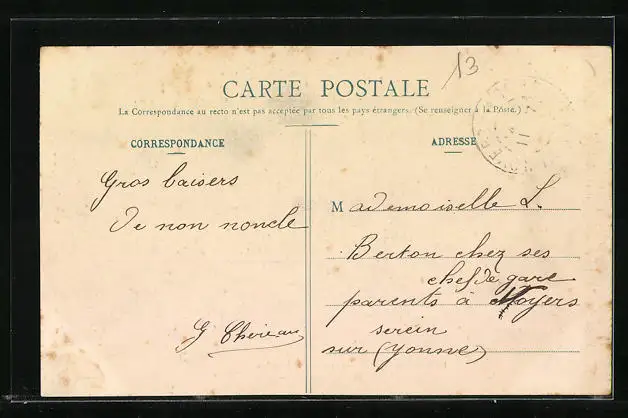 13
CARTE POSTALE
La Correspondance au recto n'est pas acceptée par tous les pays étrangers. (Se renseigner à la Poste.)
CORRESPONDANCE
Gros baisers
De non noncle
G Chereau
ADRESSE
Mademoiselle L.
Berton chez ses
chef de gare
parents à Noyers
serein
sur (Yonne)